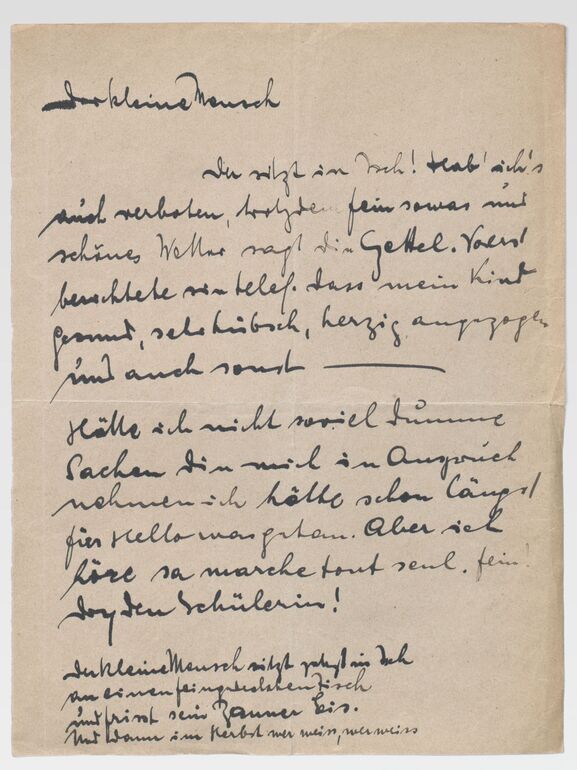 Der kleine Mensch
Der sitzt in Isch! Hab' ich's
auch verboten, trotzdem fein sowas und
schönes Wetter sagt die Gettel. Vorerst
berichtete sie telef. dass mein Kind
gesund, sehr hübsch, herzig angezogen
und auch sonst ———
Hätte ich nicht soviel dumme
Sachen die mich in Anspruch
nehmen ich hätte schon längst
für Hello was getan. Aber ich
höre sa marche tout seul. fein!
den Schülerin!
Der kleine Mensch sitzt jetzt in Isch
an einen feingedeckten Tisch
und frisst sein Zauner Eis.
Und dann im Herbst wer weiss, wer weiss